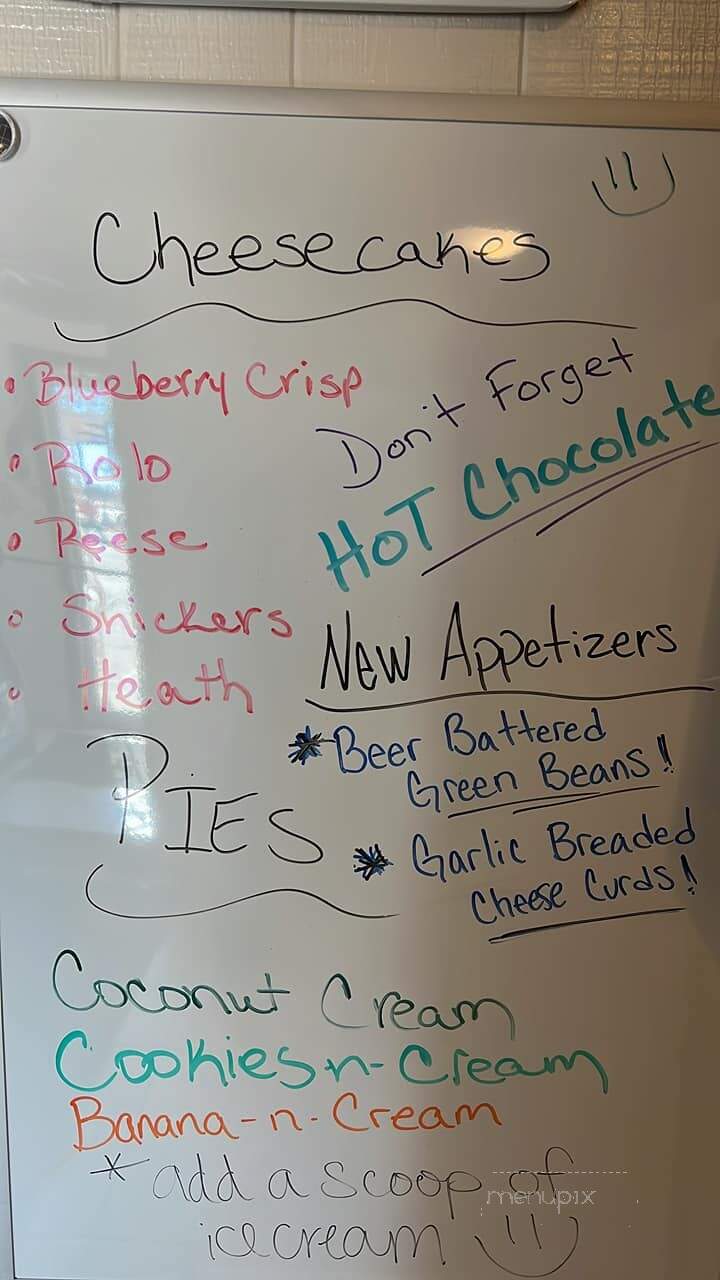 Cheesecakes
• Blueberry Crisp
• Rolo
• Reese
• Snickers
• Heath
Don't Forget
HOT Chocolate
New Appetizers
* Beer Battered
Green Beans!
* Garlic Breaded
Cheese Curds!
PIES
Coconut Cream
Cookies-n-Cream
Banana-n-Cream
* add a scoop of
ice cream
menupix